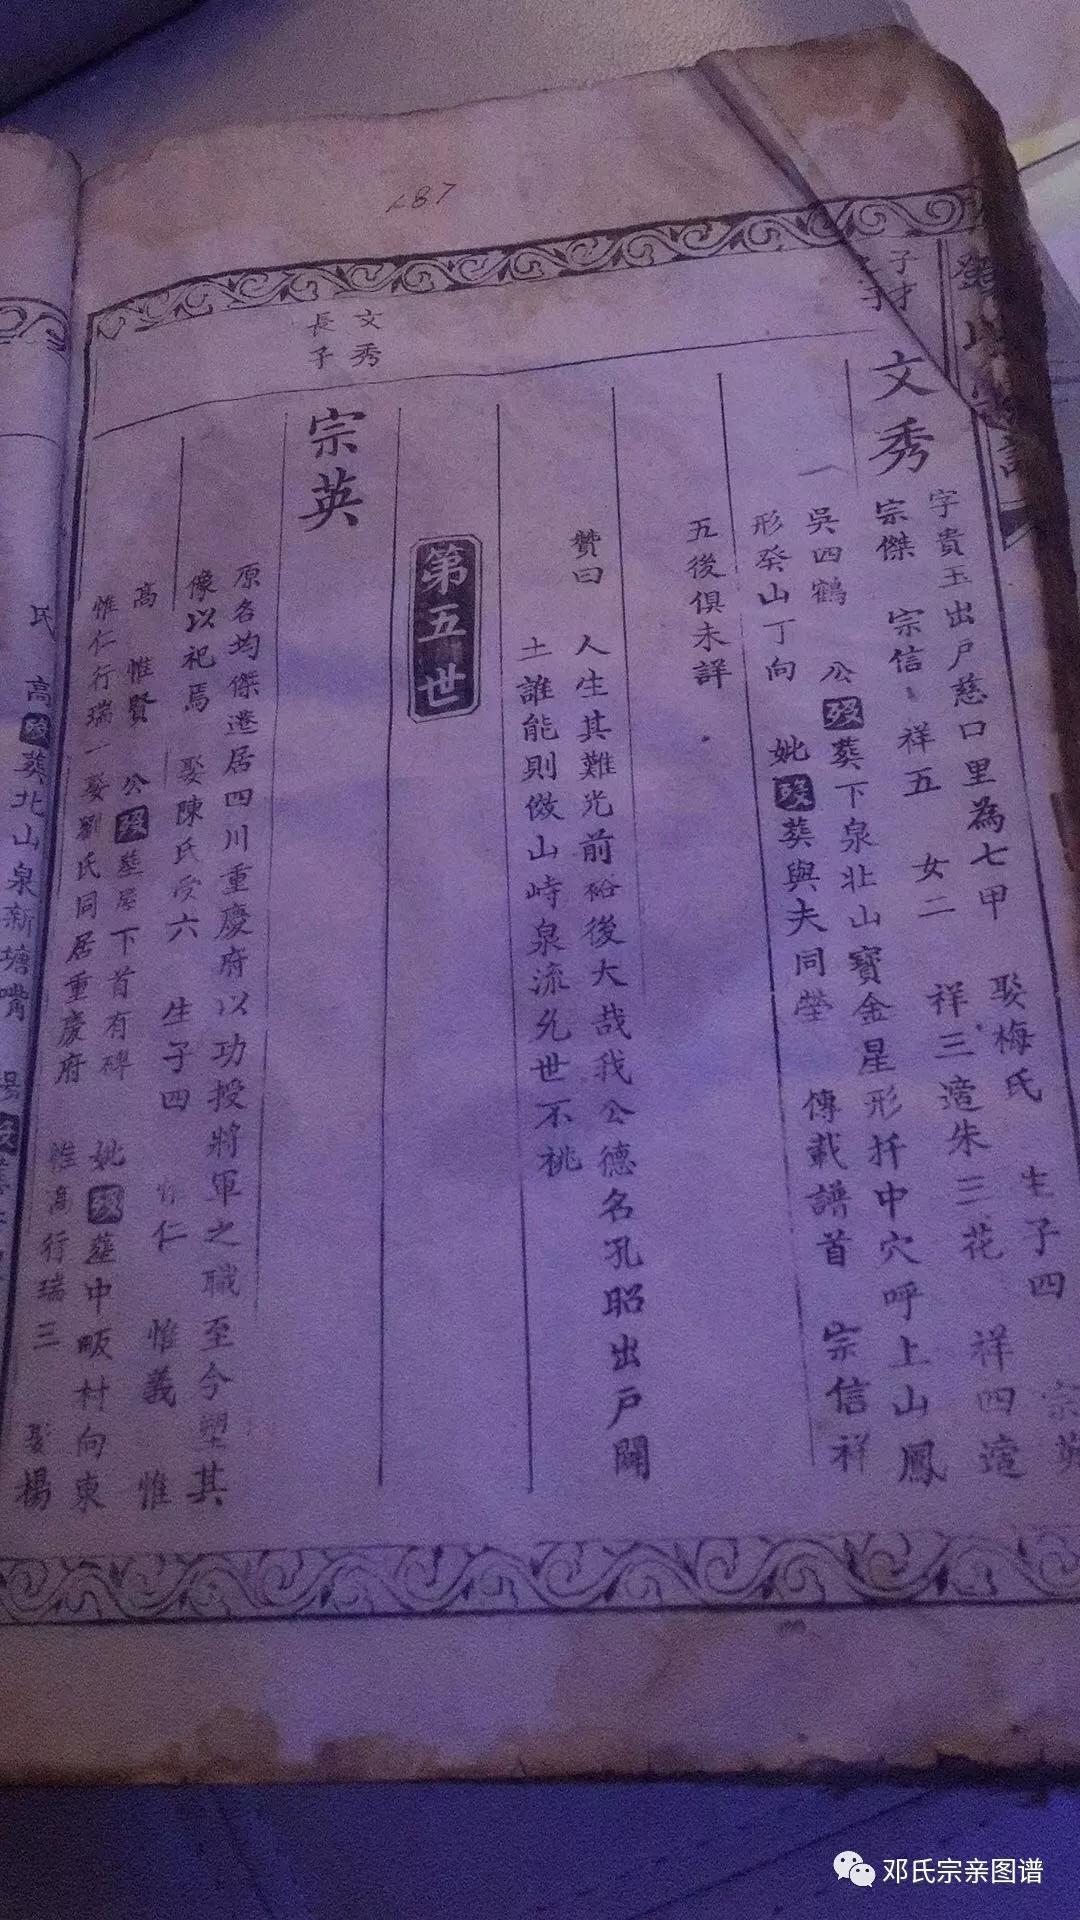 鄧氏宗譜
子才
文秀
字貴玉出戶慈口里為七甲 娶梅氏 生子四 宗英
宗傑 宗信 祥五 女二 祥三適朱三花 祥四適
吳四鶴 公歿葬下泉北山寶金星形扦中穴呼上山鳳
形癸山丁向 妣歿葬與夫同塋 傳載譜首 宗信祥
五後俱未詳
贊曰 人生其難光前裕後大哉我公德名孔昭出戶闢
土誰能則傚山峙泉流允世不祧
第五世
文秀
長子
宗英
原名均傑港居四川重慶府以功授將軍之職至今塑其
像以祀焉 娶陳氏受六 生子四 惟仁 惟義 惟
高 惟賢 公歿葬屋下首有碑 妣歿葬中畈村向東
惟仁行瑞一娶劉氏同居重慶府 惟高行瑞三 娶楊
氏 高歿葬北山泉新塘嘴 楊歿葬
187
邓氏宗亲图谱